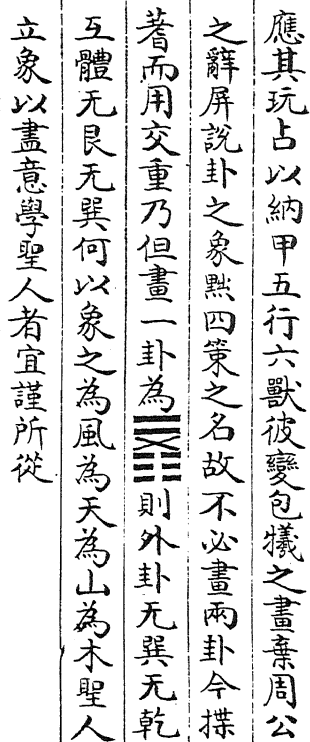 應其玩占以納甲五行六獸彼變包犧之畫棄周公
之辭屏說卦之象黜四策之名故不必畫兩卦今揲
蓍而用交重乃但畫一卦為則外卦无巽无乾
互體无艮无巽何以象之為風為天為山為木聖人
立象以盡意學聖人者宜謹所從